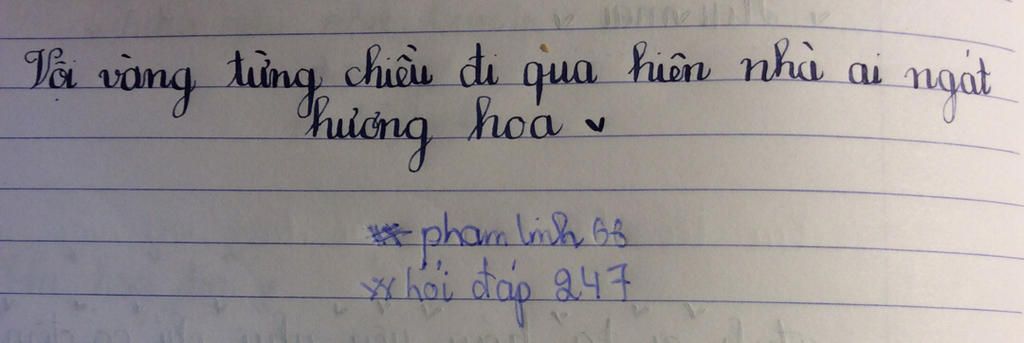 Vội vàng từng chiều đi qua hiên nhà ai ngát
hương hoa
phamlinh68
hỏi đáp 247